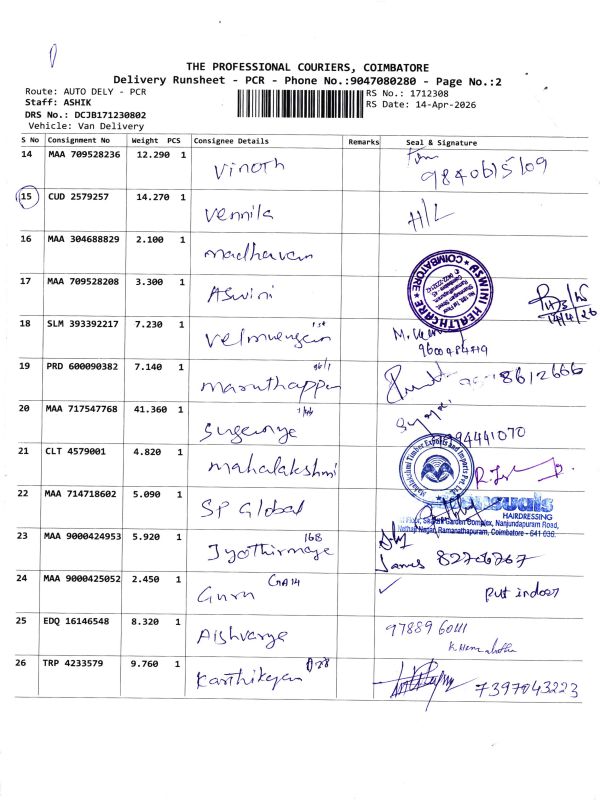 THE PROFESSIONAL COURIERS, COIMBATORE
Delivery Runsheet - PCR - Phone No.:9047080280 - Page No.:2
Route: AUTO DELY - PCR
Staff: ASHIK
DRS No.: DCJB171230802
Vehicle: Van Delivery
RS No.: 1712308
RS Date: 14-Apr-2026
S No Consignment No Weight PCS Consignee Details Remarks Seal & Signature
14 MAA 709528236 12.290 1 Vinoth 9840615109
15 CUD 2579257 14.270 1 Vennila H/L
16 MAA 304688829 2.100 1 Madhavan
17 MAA 709528208 3.300 1 Aswini
ASWINI HEALTHCARE
COIMBATORE
14/4/26
18 SLM 393392217 7.230 1
19 PRD 600090382 7.140 1 Maruthappan
20 MAA 717547768 41.360 1
21 CLT 4579001 4.820 1 Mahalakshmi
Mahalakshmi Timber Exports and Imports Pvt. Ltd.
22 MAA 714718602 5.090 1 SP Global
HAIRDRESSING
Garden Complex, Nanjundapuram Road,
Nagar, Ramanathapuram, Coimbatore - 641 036.
23 MAA 9000424953 5.920 1 168
James
24 MAA 9000425052 2.450 1 Guru ✓ Put indoor
25 EDQ 16146548 8.320 1 Aishvarya
26 TRP 4233579 9.760 1 Karthikeyan 7397043223